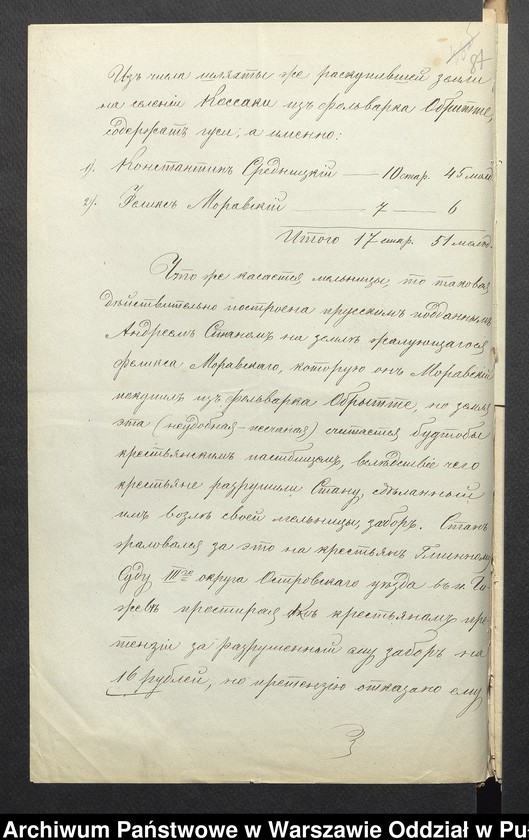 87
Изъ числа шляхты же раскупившей земли
на селеніи Коссаки изъ фольварка Обрытте,
содержатъ гуси, а именно:
1). Константинъ Средницкій — 10 стар. 45 молод
2). Феликсъ Моравскій — 7 — 6
Итого 17 стар. 51 молод.
Что же касается мельницы, то таковая
дѣйствительно построена прусскимъ подданнымъ
Андреемъ Станомъ на землѣ жалующагося
Феликса Моравскаго, которую онъ Моравскій
покупилъ изъ фольварка Обрытте, но земля
эта (неудобная – песчаная) считается будтобы
крестьянскимъ пастбищемъ, вслѣдствіе чего
крестьяне разрушили Стану, сдѣланный
имъ возлѣ своей мельницы, заборъ. Станъ
жаловался за это на крестьянъ Гминному
Суду IIIго округа Островскаго уѣзда въ п. Го-
ржевѣ простирая къ крестьянамъ пре-
тензіи за разрушенный ему заборъ на
16 рублей, но претензію отказано ему
Archiwum Państwowe w Warszawie Oddział w Pu